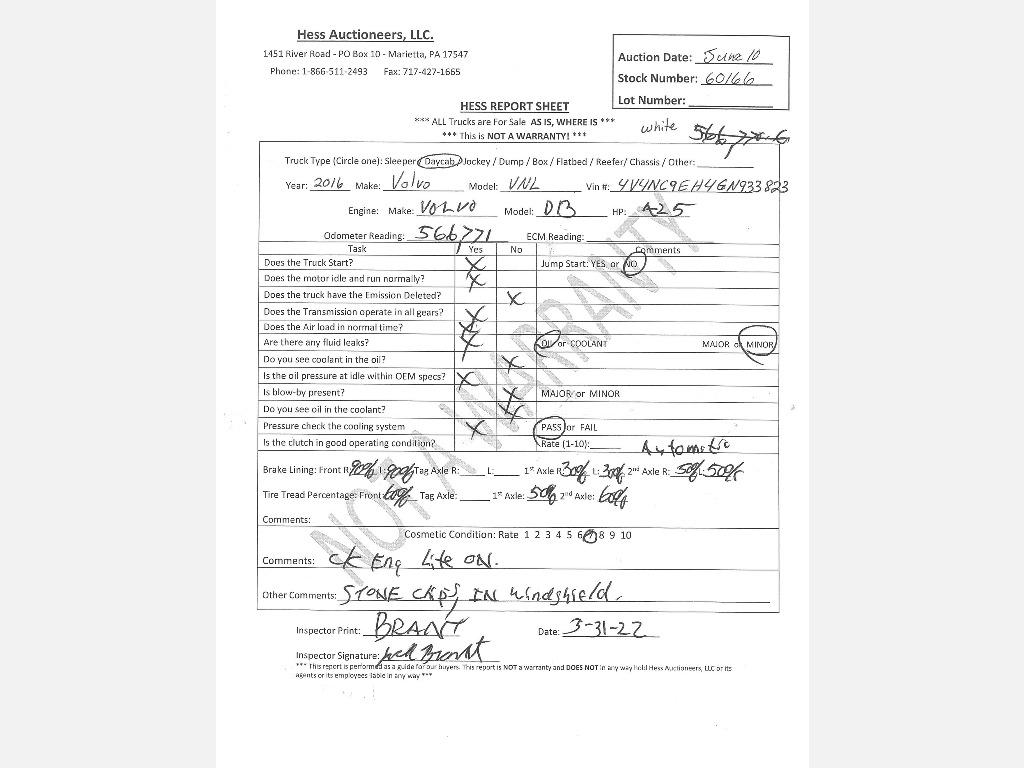 Hess Auctioneers, LLC.
1451 River Road - PO Box 10 - Marietta, PA 17547
Phone: 1-866-511-2493 Fax: 717-427-1665
Auction Date: June 10
Stock Number: 60166
Lot Number:
HESS REPORT SHEET
*** ALL Trucks are For Sale AS IS, WHERE IS ***
*** This is NOT A WARRANTY! ***
white
Truck Type (Circle one): Sleeper / Daycab / Jockey / Dump / Box / Flatbed / Reefer/ Chassis / Other:
Year: 2016 Make: Volvo Model: VNL Vin #: 4V4NC9EH4GN933823
Engine: Make: VOLVO Model: D13 HP: 425
Odometer Reading: 566771 ECM Reading:
Task Yes No Comments
Does the Truck Start? X Jump Start: YES or NO
Does the motor idle and run normally? X
Does the truck have the Emission Deleted? X
Does the Transmission operate in all gears? X
Does the Air load in normal time? X
Are there any fluid leaks? X OIL or COOLANT MAJOR or MINOR
Do you see coolant in the oil? X
Is the oil pressure at idle within OEM specs? X
Is blow-by present? X MAJOR or MINOR
Do you see oil in the coolant? X
Pressure check the cooling system X PASS or FAIL
Is the clutch in good operating condition? Rate (1-10): Automatic
Brake Lining: Front R: 90% L: 90% Tag Axle R: L: 1st Axle R: 30% L: 30% 2nd Axle R: 50% L: 50%
Tire Tread Percentage: Front: 60% Tag Axle: 1st Axle: 50% 2nd Axle: 60%
Comments:
Cosmetic Condition: Rate 1 2 3 4 5 6 7 8 9 10
Comments: CK Eng Lite ON.
Other Comments: STONE CHIPS IN windshield.
Inspector Print: BRANT Date: 3-31-22
Inspector Signature:
*** This report is performed as a guide for our buyers. This report is NOT a warranty and DOES NOT in any way hold Hess Auctioneers, LLC or its
agents or its employees liable in any way ***
NOT A WARRANTY